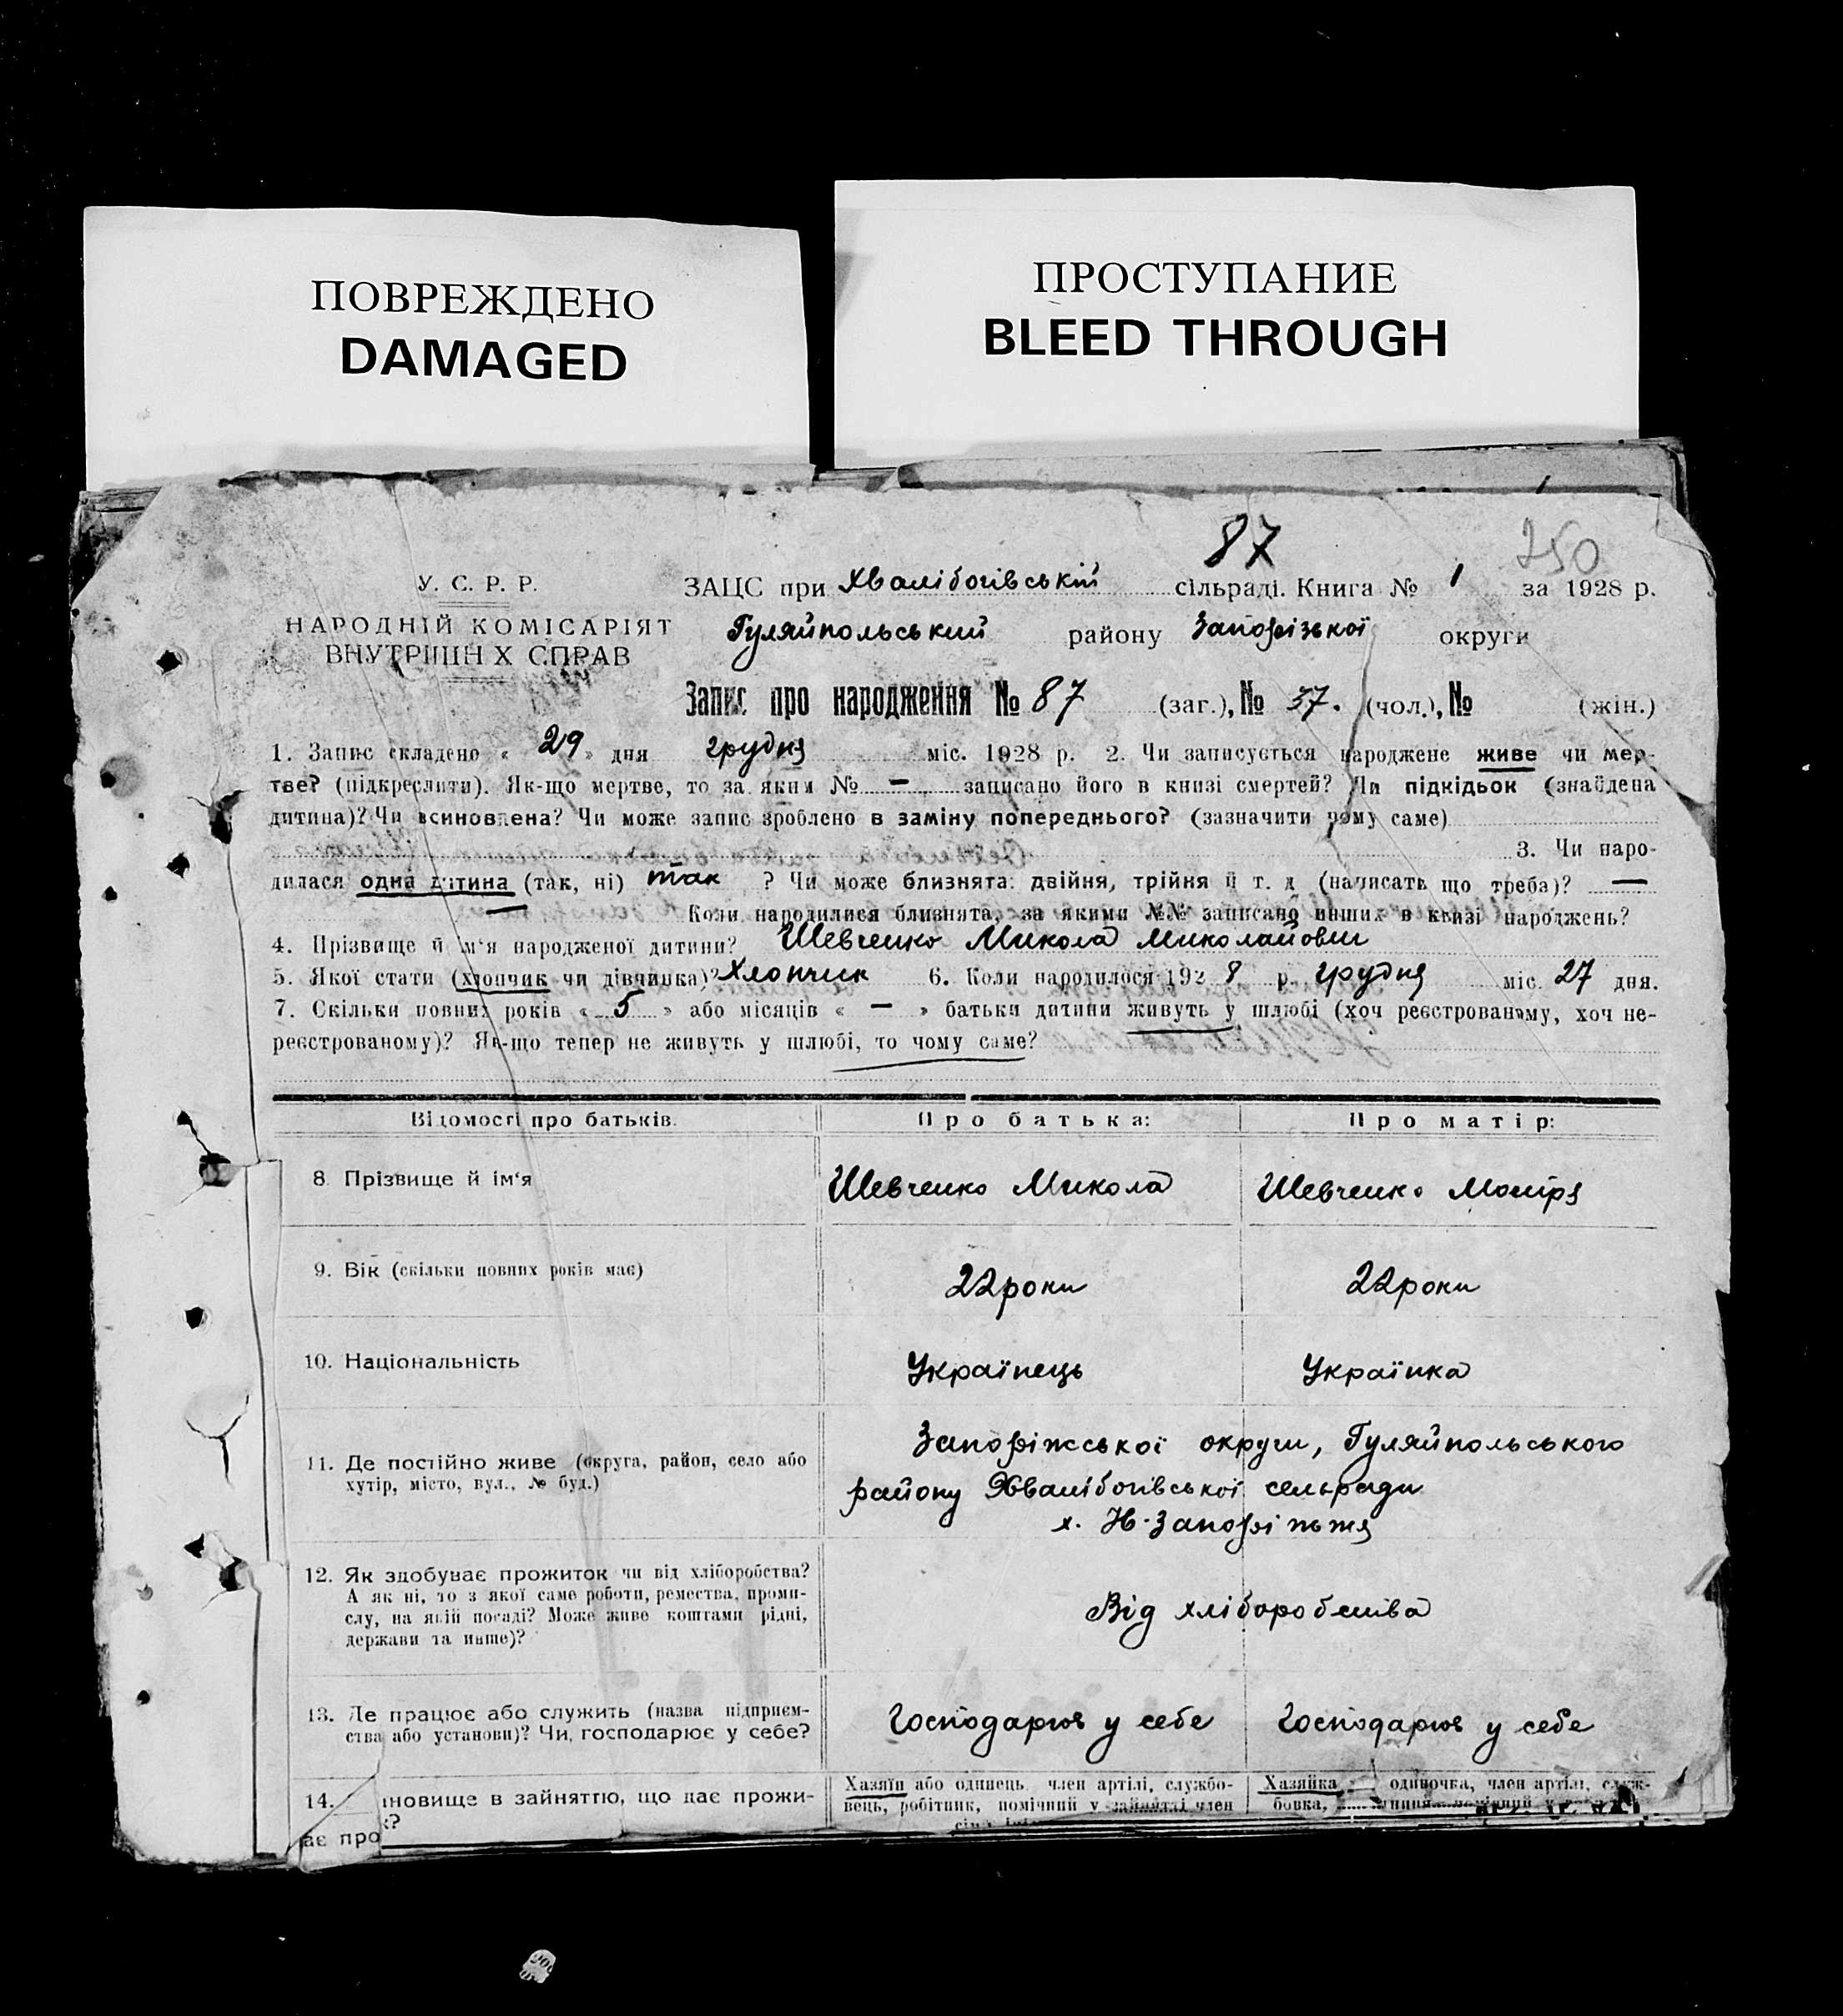 ПОВРЕЖДЕНО
DAMAGED
ПРОСТУПАНИЕ
BLEED THROUGH
87
250
У. С. Р. Р.
НАРОДНІЙ КОМІСАРІЯТ
ВНУТРІШН Х СПРАВ
ЗАЦС при Хвалібогівській сільраді. Книга № 1 за 1928 р.
Гуляйпольський району Запорізької округи
Запис про народження № 87 (заг.), № 37. (чол.), № (жін.)
1. Запис складено « 29 » дня грудня міс. 1928 р. 2. Чи записується народжене живе чи мер-
тве? (підкреслити). Як-що мертве, то за яким № — записано його в книзі смертей? Чи підкідьок (знайдена
дитина)? Чи всиновлена? Чи може запис зроблено в заміну попереднього? (зазначити чому саме)
3. Чи наро-
дилася одна дитина (так, ні) так ? Чи може близнята: двійня, трійня й т. д (написать що треба)? —
Коли народилися близнята, за якими №№ записано инших в книзі народжень?
4. Прізвище й ім‘я народженої дитини? Шевченко Микола Миколайович
5. Якої стати (хлопчик чи дівчинка)? Хлопчик 6. Коли народилося 192 8 р. грудня міс. 27 дня.
7. Скільки повних років « 5 » або місяців « — » батьки дитини живуть у шлюбі (хоч реєстрованому, хоч не-
реєстрованому)? Як-що тепер не живуть у шлюбі, то чому саме?
Відомості про батьків. Про батька: Про матір:
8 Прізвище й ім‘я Шевченко Микола Шевченко
9. Вік (скільки повних років має) 22 роки 22 роки
10. Національність Українець Українка
11. Де постійно живе (округа, район, село або
хутір, місто, вул., № буд.)
Запоріжської округи, Гуляйпольського
району Хвалібогівської сельради
х. Н-Запоріжжя
12. Як здобуває прожиток чи від хліборобства?
А як ні, то з якої саме роботи, ремества, проми-
слу, на якій посаді? Може живе коштами рідні,
держави та инше)?
Від хліборобства
13. Де працює або служить (назва підприєм-
ства або установи)? Чи, господарює у себе?
Господарює у себе Господарює у себе
14. новище в зайняттю, що дає прожи-
ає про
Хазяїн або одинець член артілі, службо-
вець, робітник, помічний у зайнятті член
Хазяйка одиночка, член артілі, служ-
бовка,